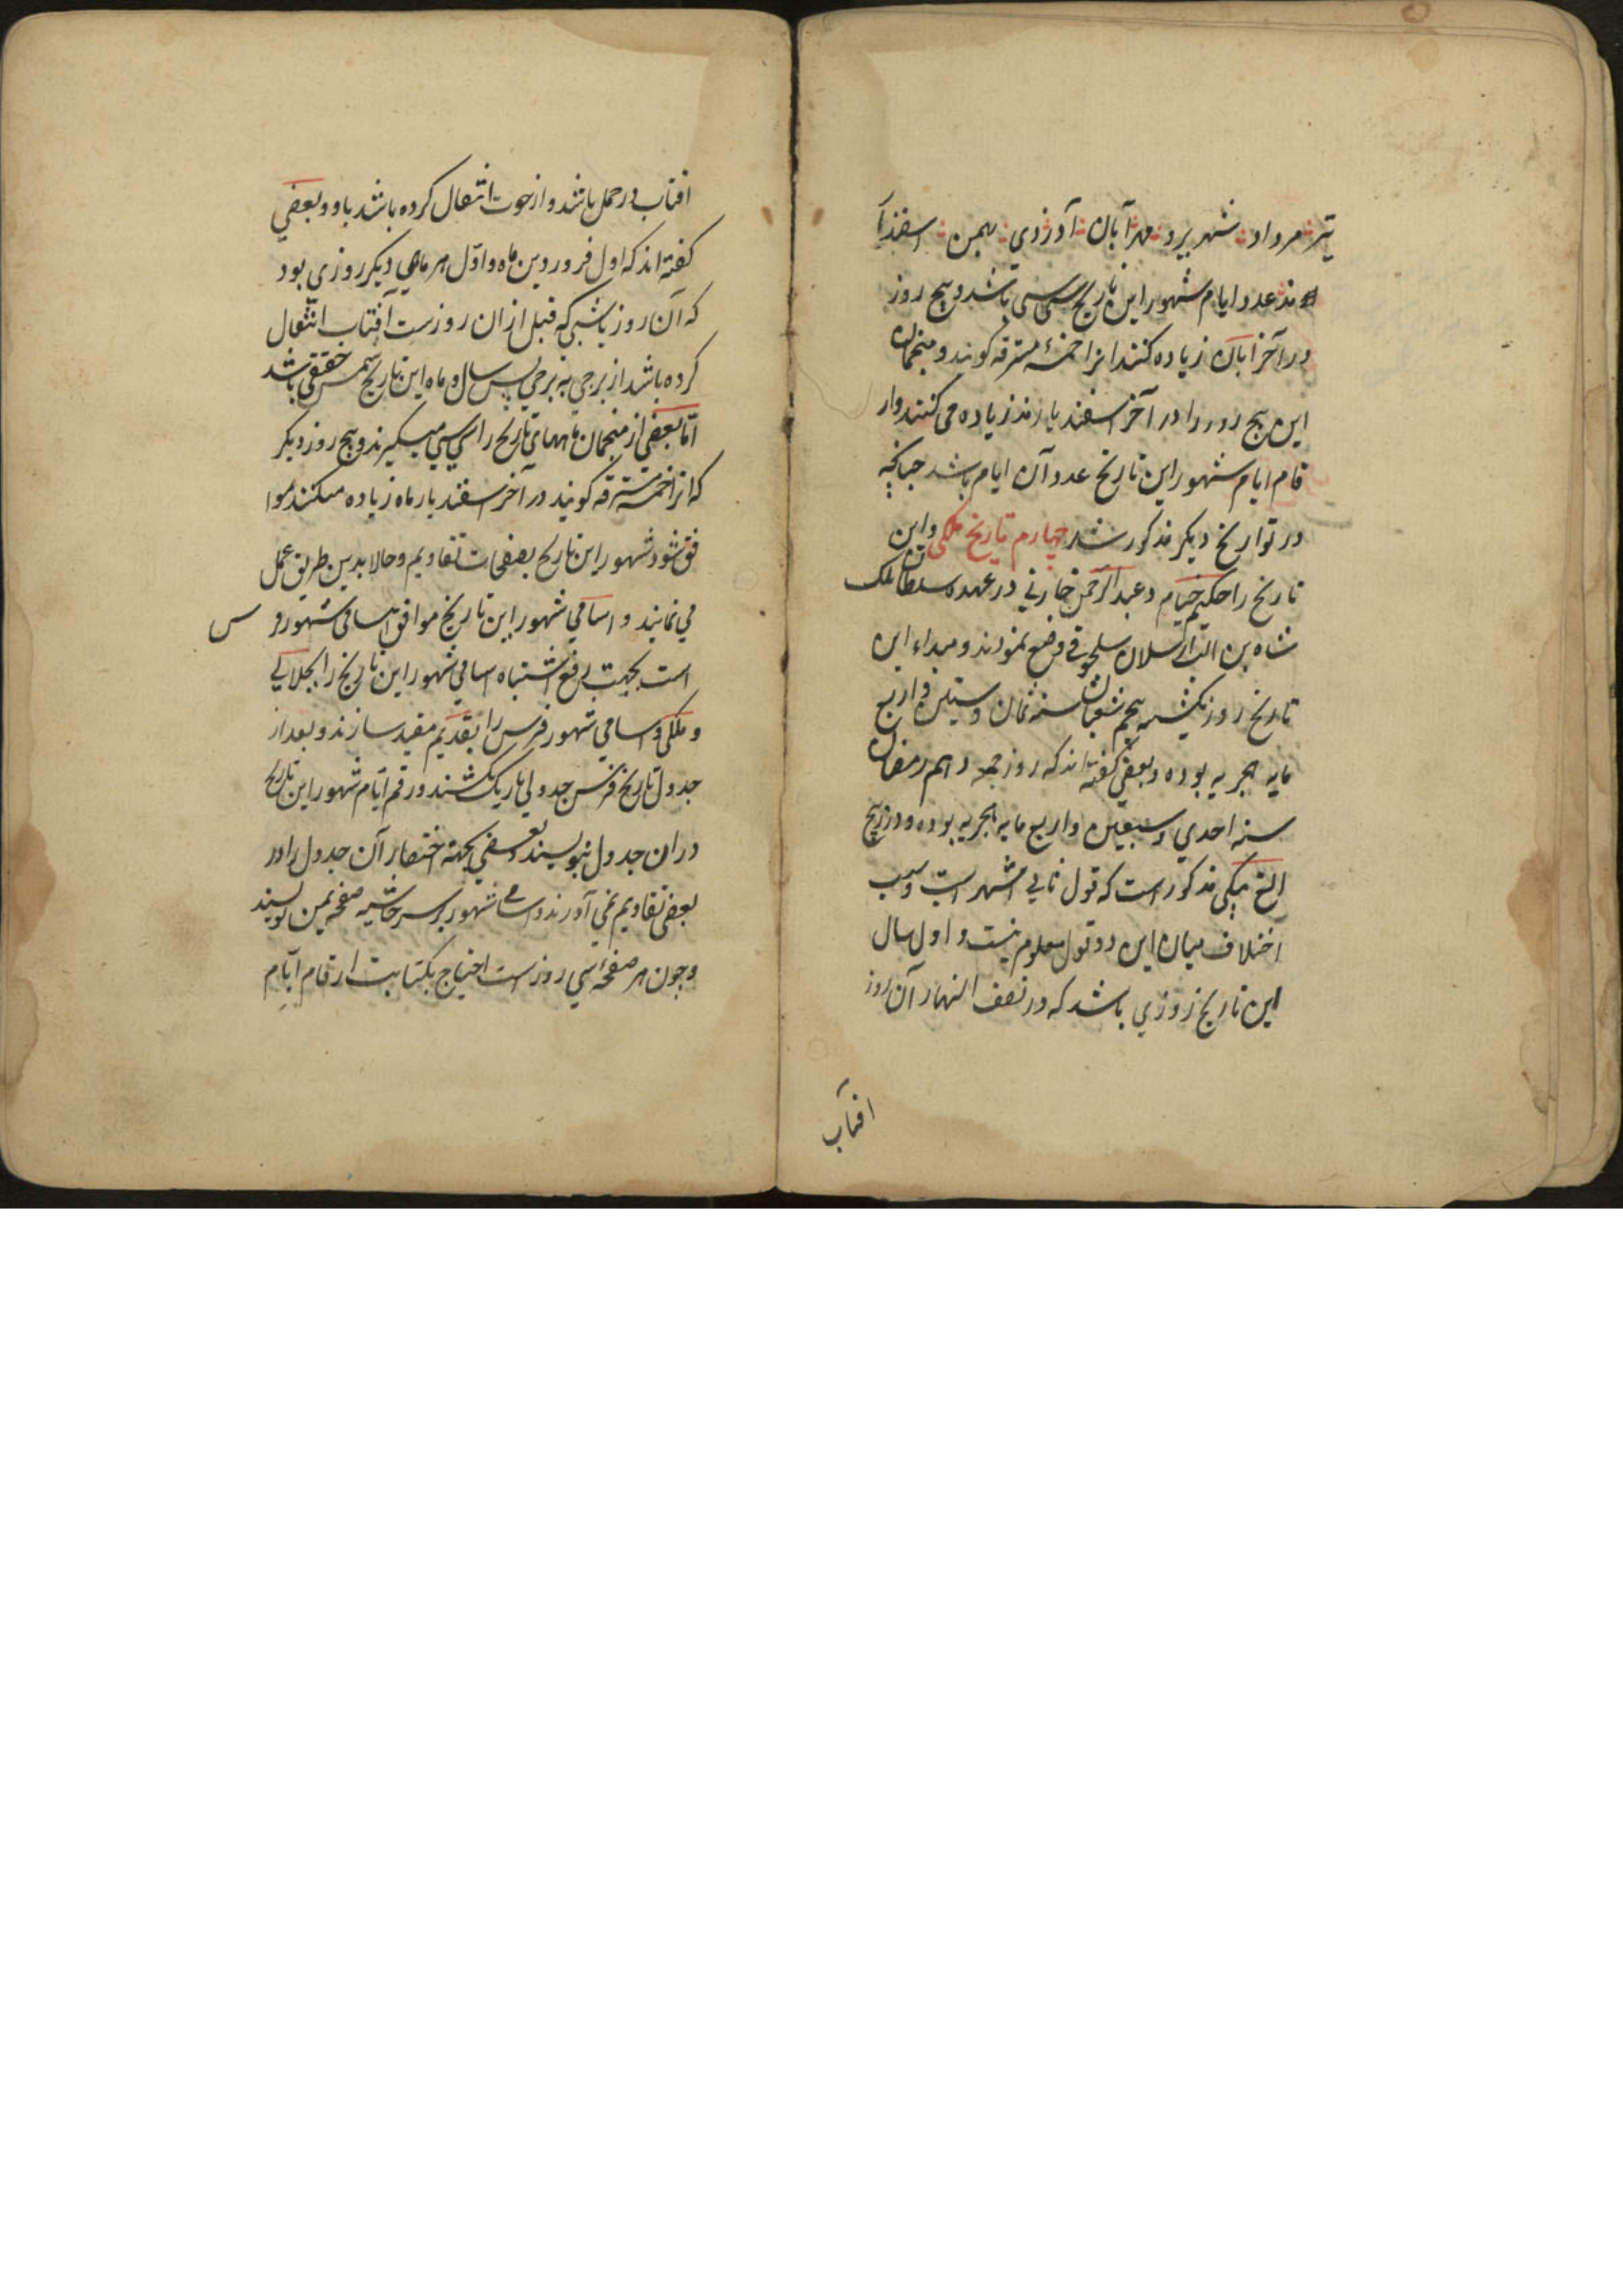 تیر مرداد شهریر مهر آبان آذر دی بهمن اسفندا
مذ عدد ایام شهور این تاریخ سی سی باشد و پنج روز
در آخر ابان زیاده کنند انرا خمسهٔ مسترقه کویند و منجمان
این پنج روز را در آخر اسفندیارمذ زیاده می کنند و ار
قام ایام شهور این تاریخ عدد آن ایام باشد چنانچه
در تواریخ دیکر مذکور شد چهارم تاریخ ملکی و این
تاریخ را حکیم خیام و عبدالرحمن خازنی در عهد سلطان ملک
شاه بن الب ارسلان سلجوقی وضع نمودند و مبداء این
تاریخ روز یکشنبه پنجم شعبان سنه ثمان و ستین و اربع
مایه هجریه بوده و بعضی کفته اند که روز جمعه دهم رمضان
سنه احدی و سبعین و اربع مایه هجریه بوده و در زیج
الغ بیکی مذکور است که قول ثانی اشهر است و سبب
اختلاف میان این دو قول معلوم نیست و اول سال
این تاریخ روزی باشد که در نصف النهار آن روز
افتاب
افتاب در حمل باشد و از حوت انتقال کرده باشد باو و بعضی
کفته اند که اول فروردین ماه و اول هر ماهی دیکر روزی بود
که آن روز یا شبی که قبل ازان روزست آفتاب انتقال
کرده باشد از برجی به برجی پس سال و ماه این تاریخ شمسی حقیقی باشد
اما بعضی از منجمان ماههای تاریخ را سی سی میکیرند و پنج روز دیکر
که انرا خمسه مسترقه کویند در آخر اسفندیار ماه زیاده میکنند موا
فق شود شهور این تاریخ بصفحات تقاویم و حالا بدین طریق عمل
می نمایند و اسامی شهور این تاریخ موافق اسامی شهور فر س
است بجهت رفع اشتباه اسامی شهور این تاریخ را بجلالی
و ملکی و اسامی شهور فرس را بقدیم مقید سازند و بعد از
جدول تاریخ فرس جدولی باریک کشند و رقم ایام شهور این تاریخ
دران جدول بنویسند و بعضی بجهته اختصار آن جدول را در
بعضی تقاویم نمی آورند و اسامی شهور بر سر حاشیه صفحه یمین نویسند
و چون هر صفحه سی روز است احتیاج بکتابت ارقام ایام